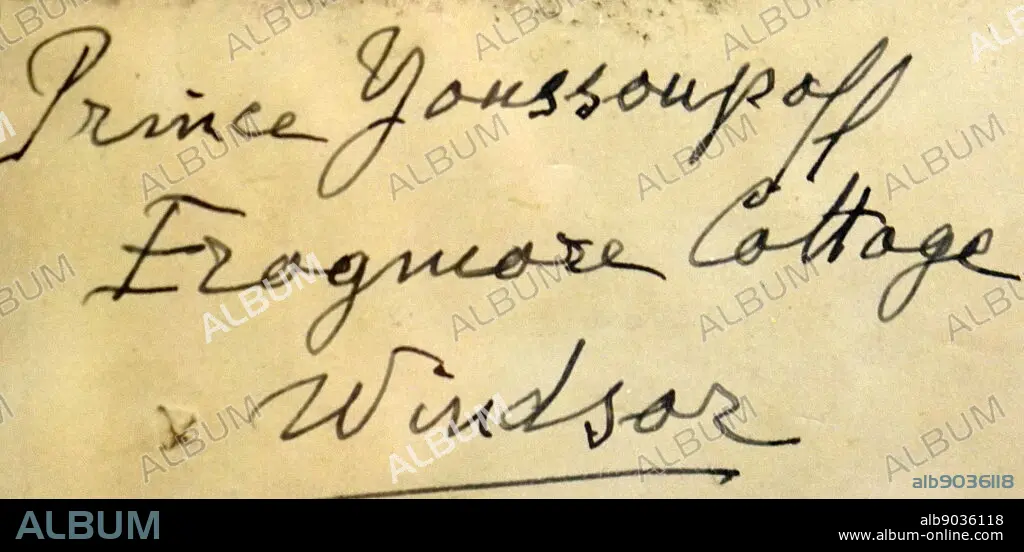 Prince Youssoupoff
Frogmore Cottage
Windsor
alb9036118
ALBUM
alb9036118
www.album-online.com